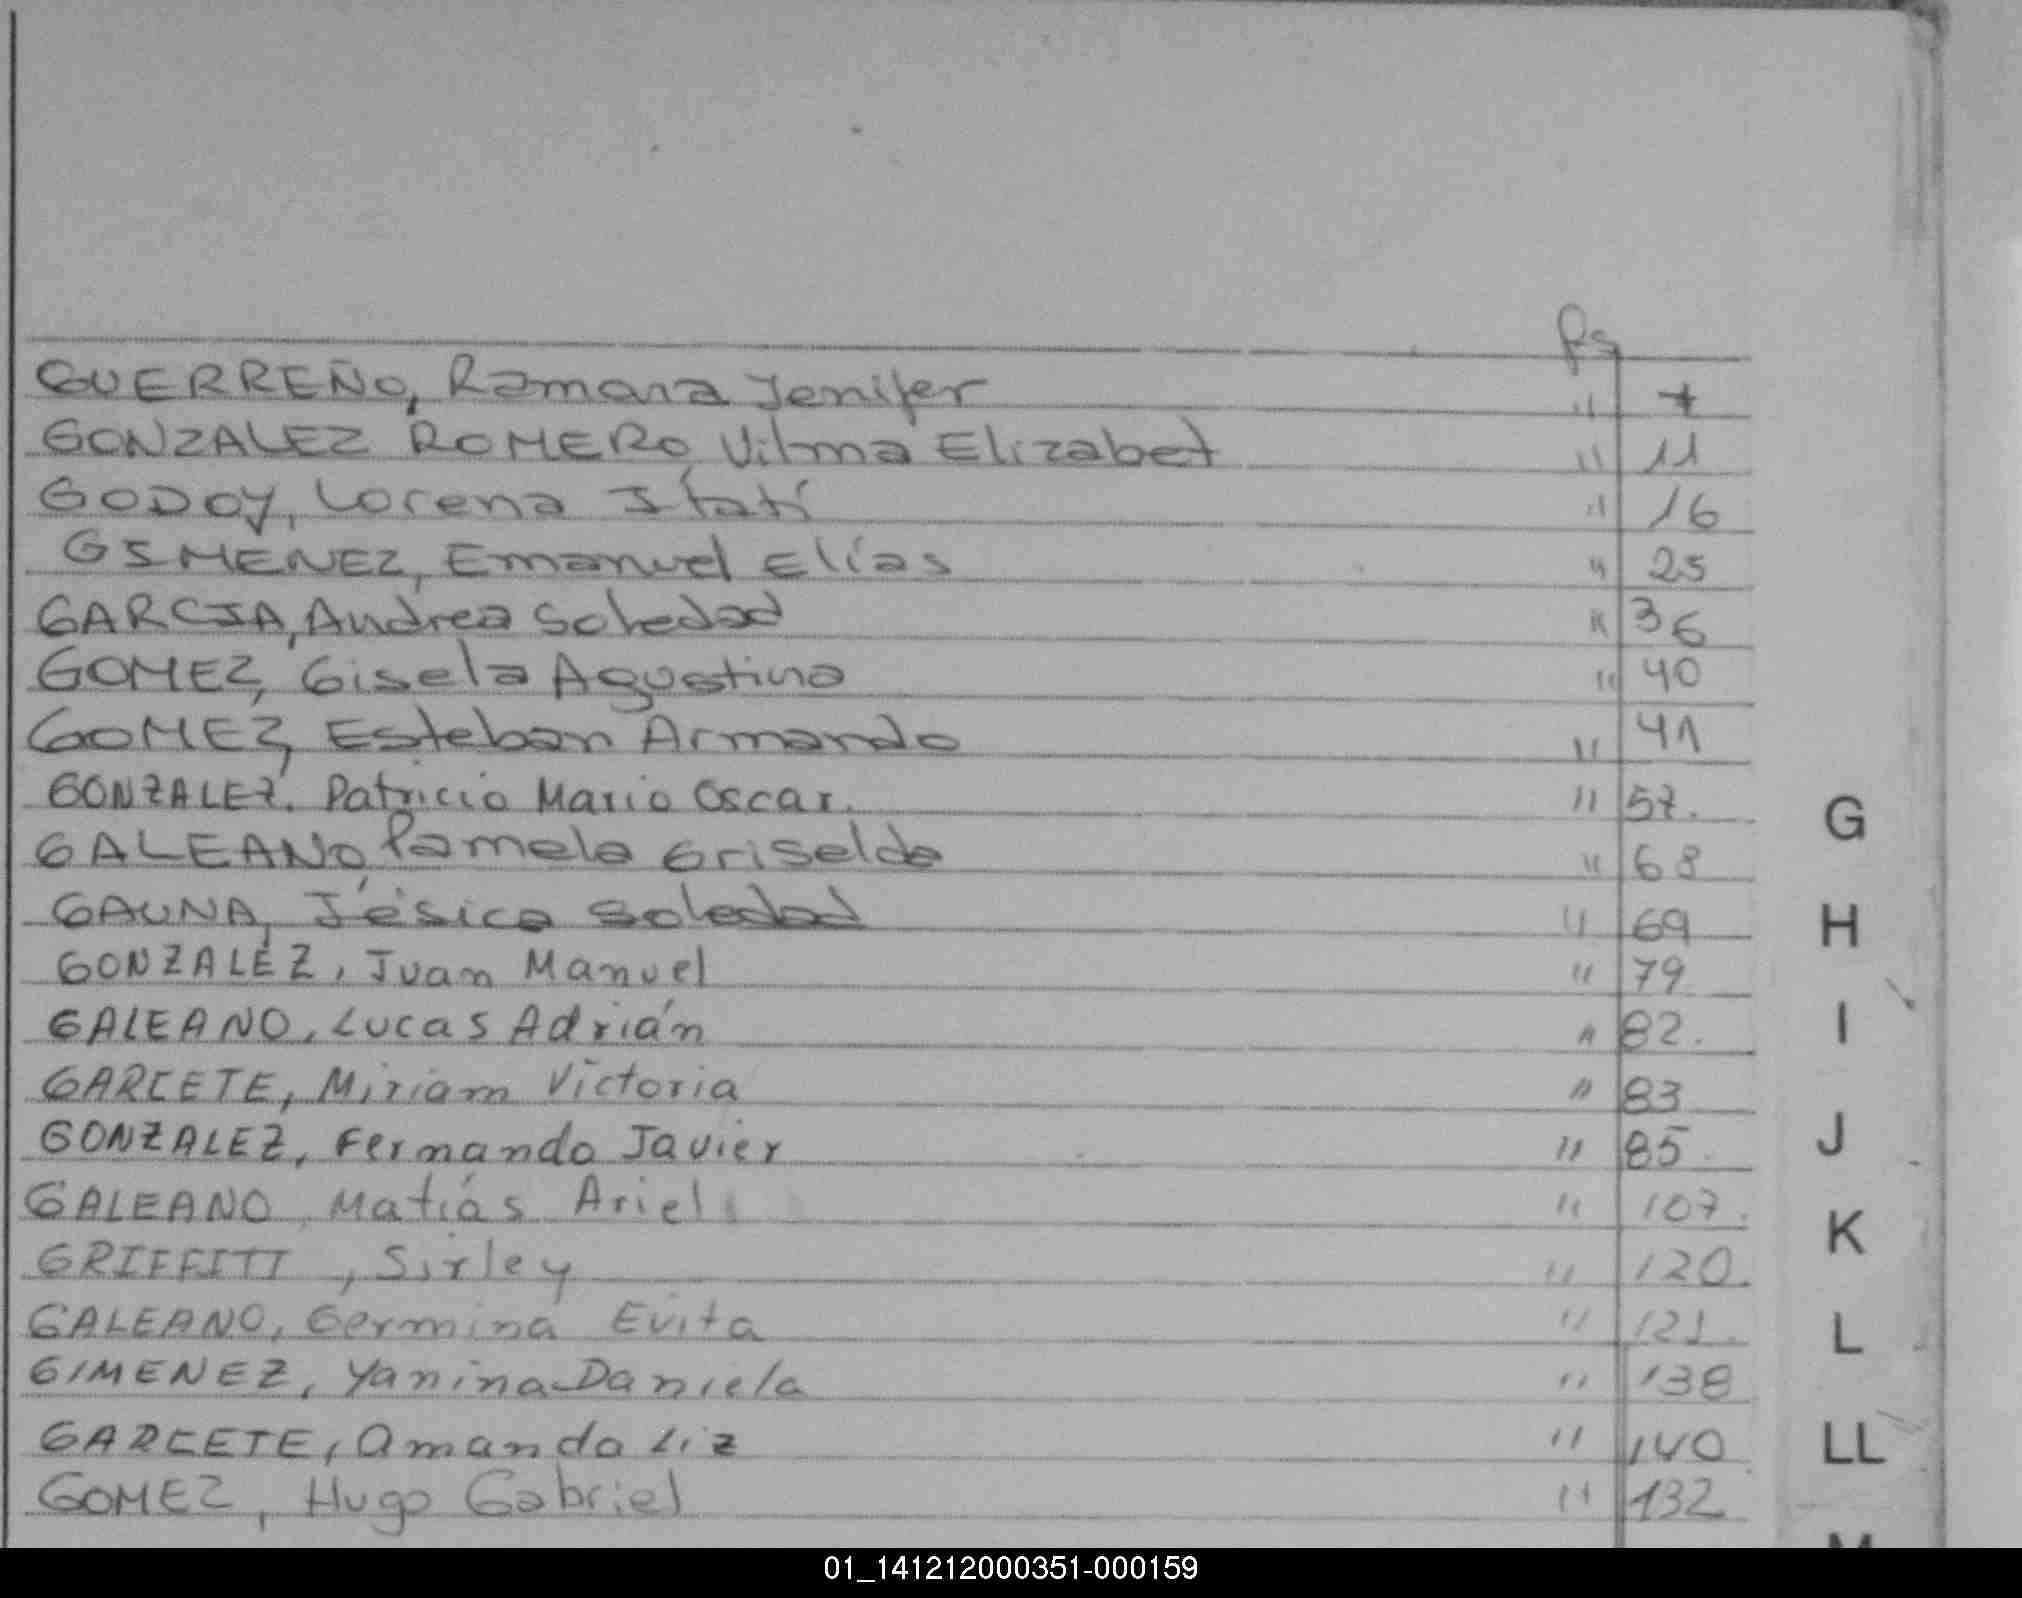 fs
GUERREÑO, Ramona Jenifer " 7
GONZALEZ ROMERO, Vilma Elizabet " 11
GODOY, Lorena Itatí " 16
GIMENEZ, Emanuel Elías " 25
GARCIA, Andrea Soledad " 36
GOMEZ, Gisela Agustina " 40
GOMEZ, Esteban Armando " 41
GONZALEZ, Patricio Mario Oscar. " 57.
GALEANO, Pamela Griselda " 68
GAUNA, Jésica Soledad " 69
GONZALEZ, Juan Manuel " 79
GALEANO, Lucas Adrián " 82.
GARCETE, Miriam Victoria " 83
GONZALEZ, Fernando Javier " 85.
GALEANO, Matías Ariel " 107.
GRIFFITT, Sirley " 120.
GALEANO, Germina Evita " 121.
GIMENEZ, Yanina Daniela " 138
GARCETE, Amanda Liz " 140
GOMEZ, Hugo Gabriel " 132
G
H
I
J
K
L
LL
M
01_141212000351-000159